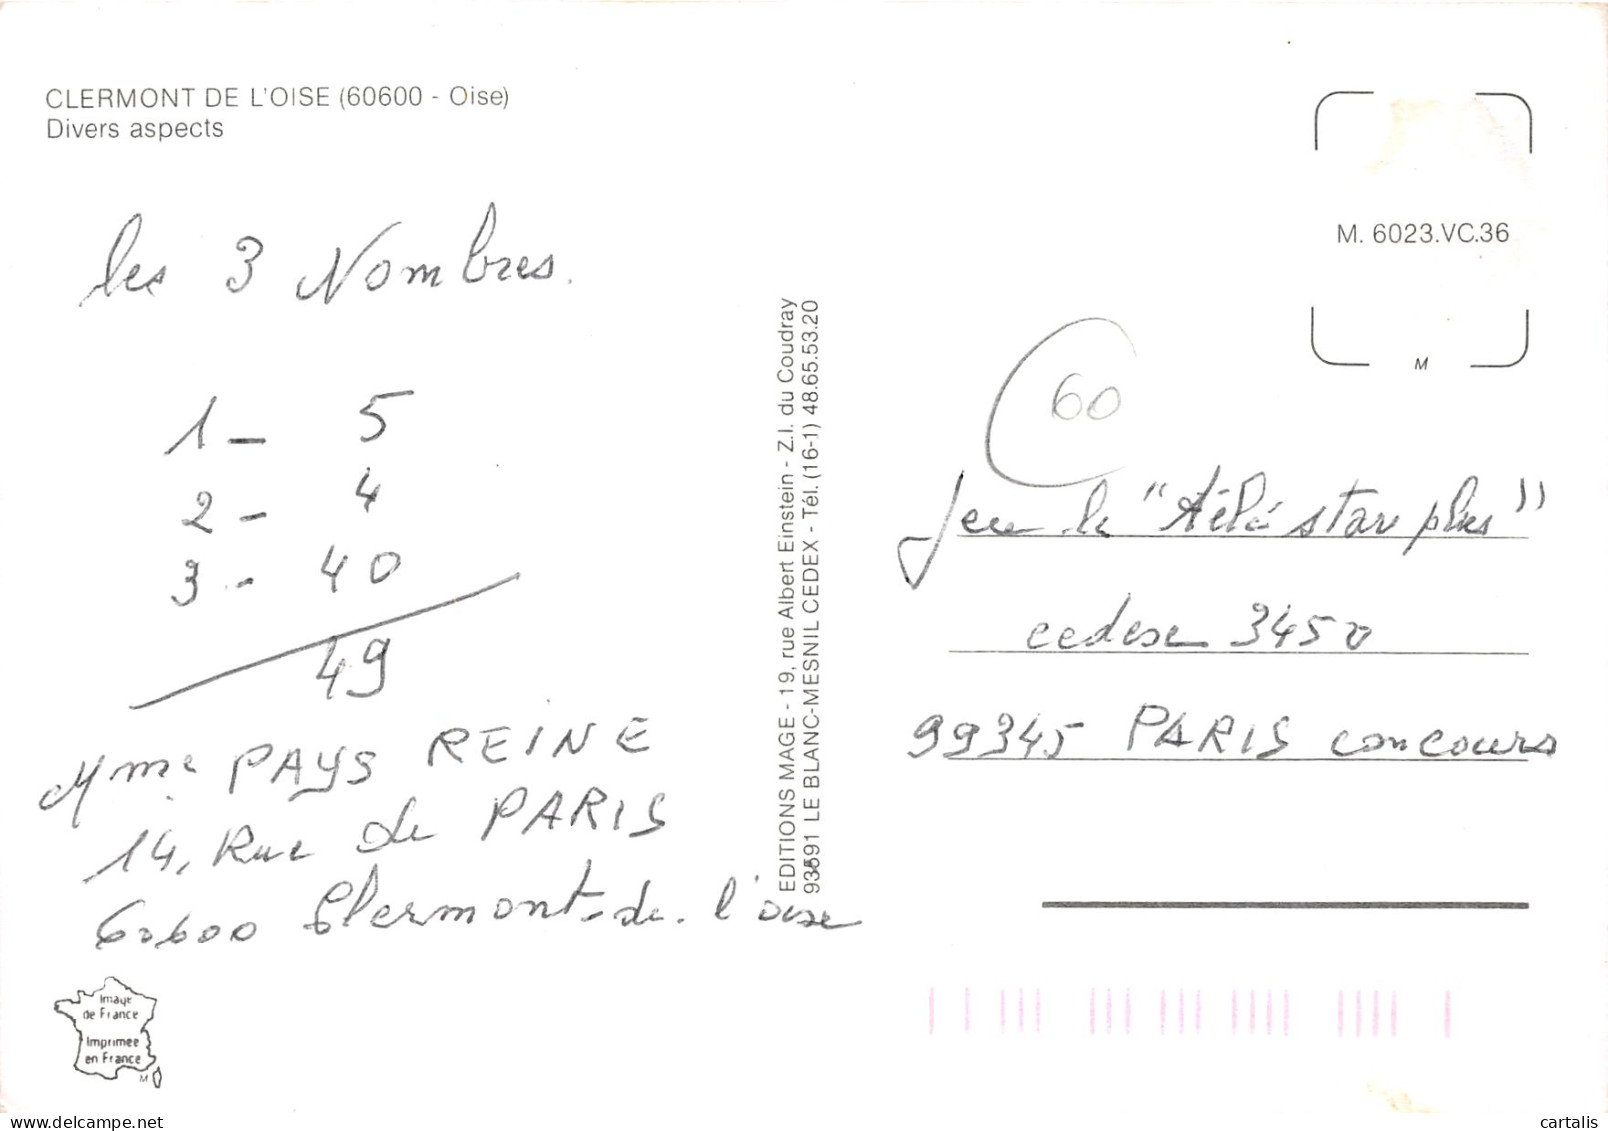 CLERMONT DE L'OISE (60600 - Oise)
Divers aspects
les 3 Nombres.
1 - 5
2 - 4
3 - 40
49
Mme PAYS REINE
14, Rue de PARIS
60600 Clermont-de-l'oise
Image
de France
Imprimee
en France
M
EDITIONS MAGE - 19, rue Albert Einstein - Z.I. du Coudray
93591 LE BLANC-MESNIL CEDEX - Tél. (16-1) 48.65.53.20
M. 6023.VC.36
M
60
Jeu le "télé star plus"
cedese 3450
99345 PARIS concours
cartalis